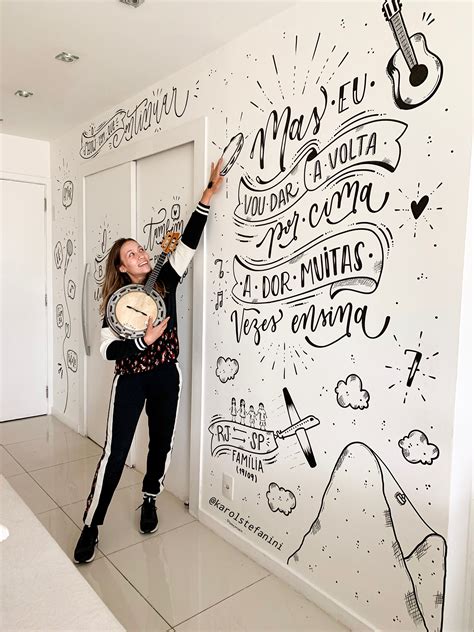 continuar
também
Mas eu
vou dar a volta
por cima
a dor muitas
vezes ensina
RJ SP
família
(19/09)
@karolstefanini